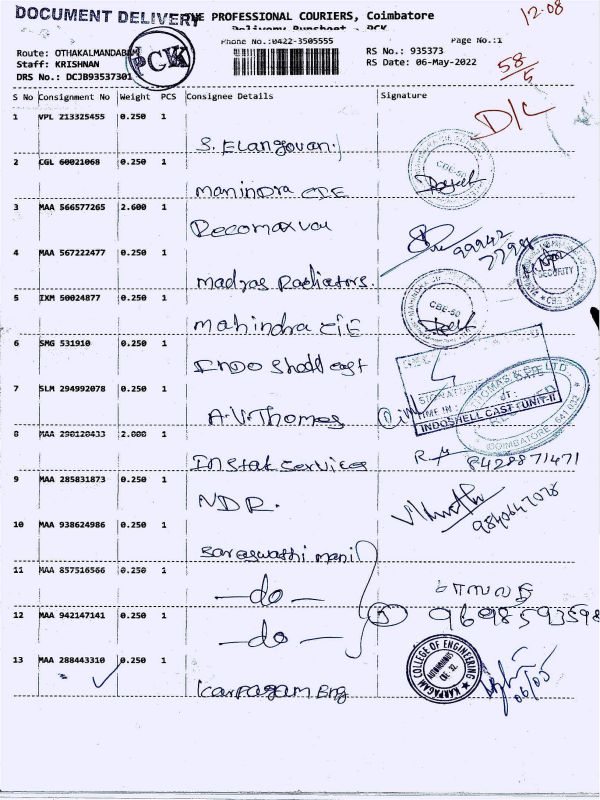 DOCUMENT DELIVERY THE PROFESSIONAL COURIERS, Coimbatore
12.08
Delivery Runsheet - PGK
Phone No.:0422-3505555 Page No.:1
Route: OTHAKALMANDABAM RS No.: 935373
Staff: KRISHNAN RS Date: 06-May-2022
DRS No.: DCJB93537301
PGK
58/5
S No Consignment No Weight PCS Consignee Details Signature
D/C
1 VPL 213325455 0.250 1 S. Elangovan
2 CGL 60021068 0.250 1 Mahindra CIE
CBE-50
3 MAA 566577265 2.600 1
99942
77998
4 MAA 567222477 0.250 1 Madras Radiators.
SECURITY
5 IXM 50024877 0.250 1 Mahindra CIE
CBE-50
6 SMG 531910 0.250 1 Indo Shall cast
7 SLM 294992078 0.250 1 A.V. Thomas
TIME IN :
INDOSHELL CAST UNIT-II
COIMBATORE - 641 032
8 MAA 290120433 2.000 1 Instak Services
8428871471
9 MAA 285831873 0.250 1 NDR.
9840647078
10 MAA 938624986 0.250 1 Saraswathi mani
11 MAA 857516566 0.250 1 —do—
12 MAA 942147141 0.250 1 —do—
9698593598
13 MAA 288443310 0.250 1 Karpagam Eng
KARPAGAM COLLEGE OF ENGINEERING
AUTONOMOUS
CBE-32.
06/05